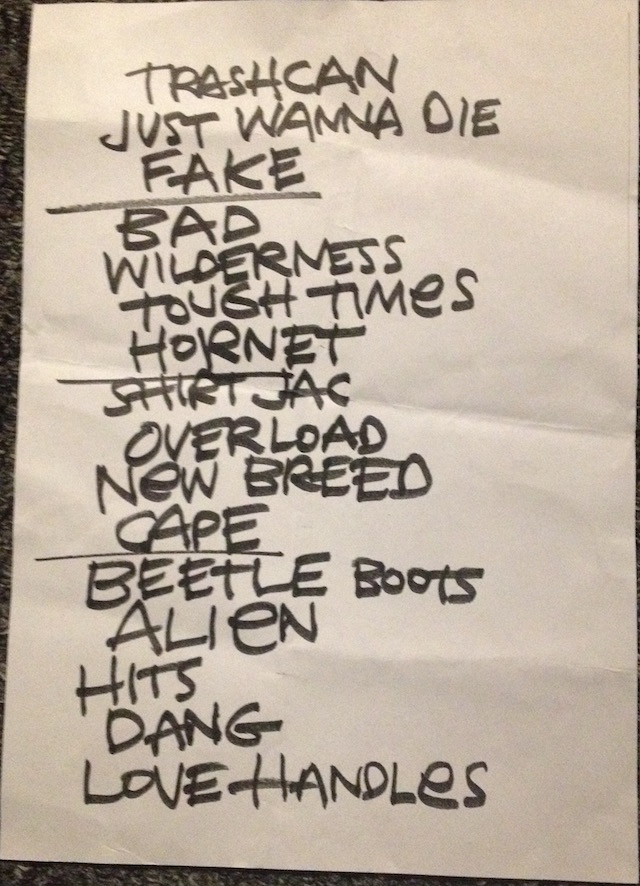 TRASHCAN
JUST WANNA DIE
FAKE
BAD
WILDERNESS
TOUGH TIMeS
HORNET
SHIRT JAC
OVERLOAD
NeW BREED
CAPE
BEETLE BOOTS
ALIeN
HITS
DANG
LOVE HANDLeS